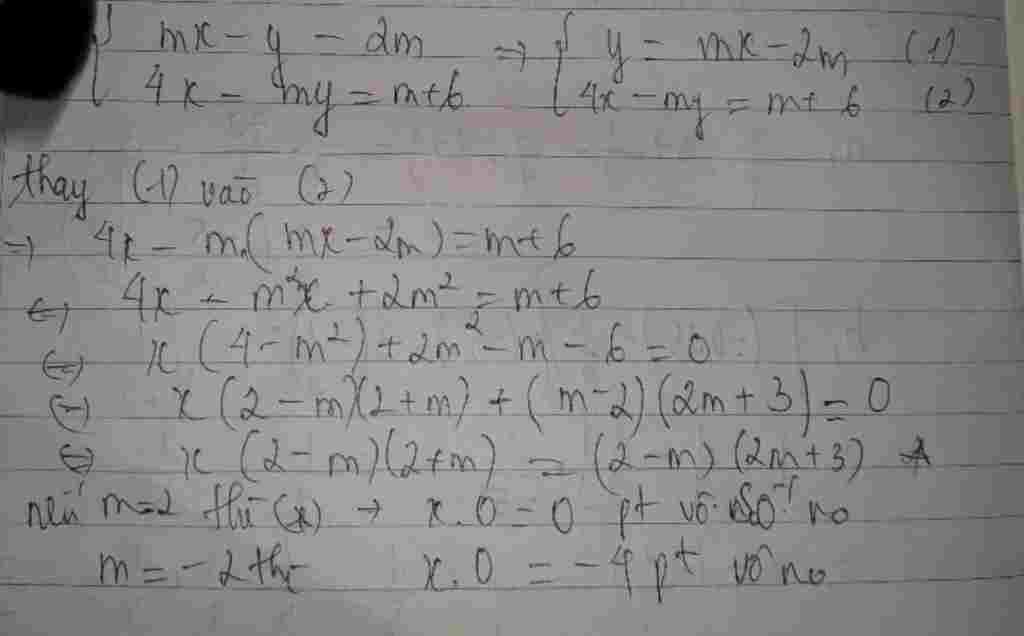 mx - y = 2m => y = mx - 2m (1)
4x - my = m+6 4x - my = m+6 (2)
thay (1) vào (2)
=> 4x - m.(mx - 2m) = m+6
<=> 4x - m²x + 2m² = m+6
<=> x(4 - m²) + 2m² - m - 6 = 0
<=> x(2 - m)(2+m) + (m-2)(2m+3) = 0
<=> x(2-m)(2+m) = (2-m)(2m+3) *
nếu m=2 thì (*) → x.0 = 0 pt vô số no
m = -2 thì x.0 = -4 pt vô no